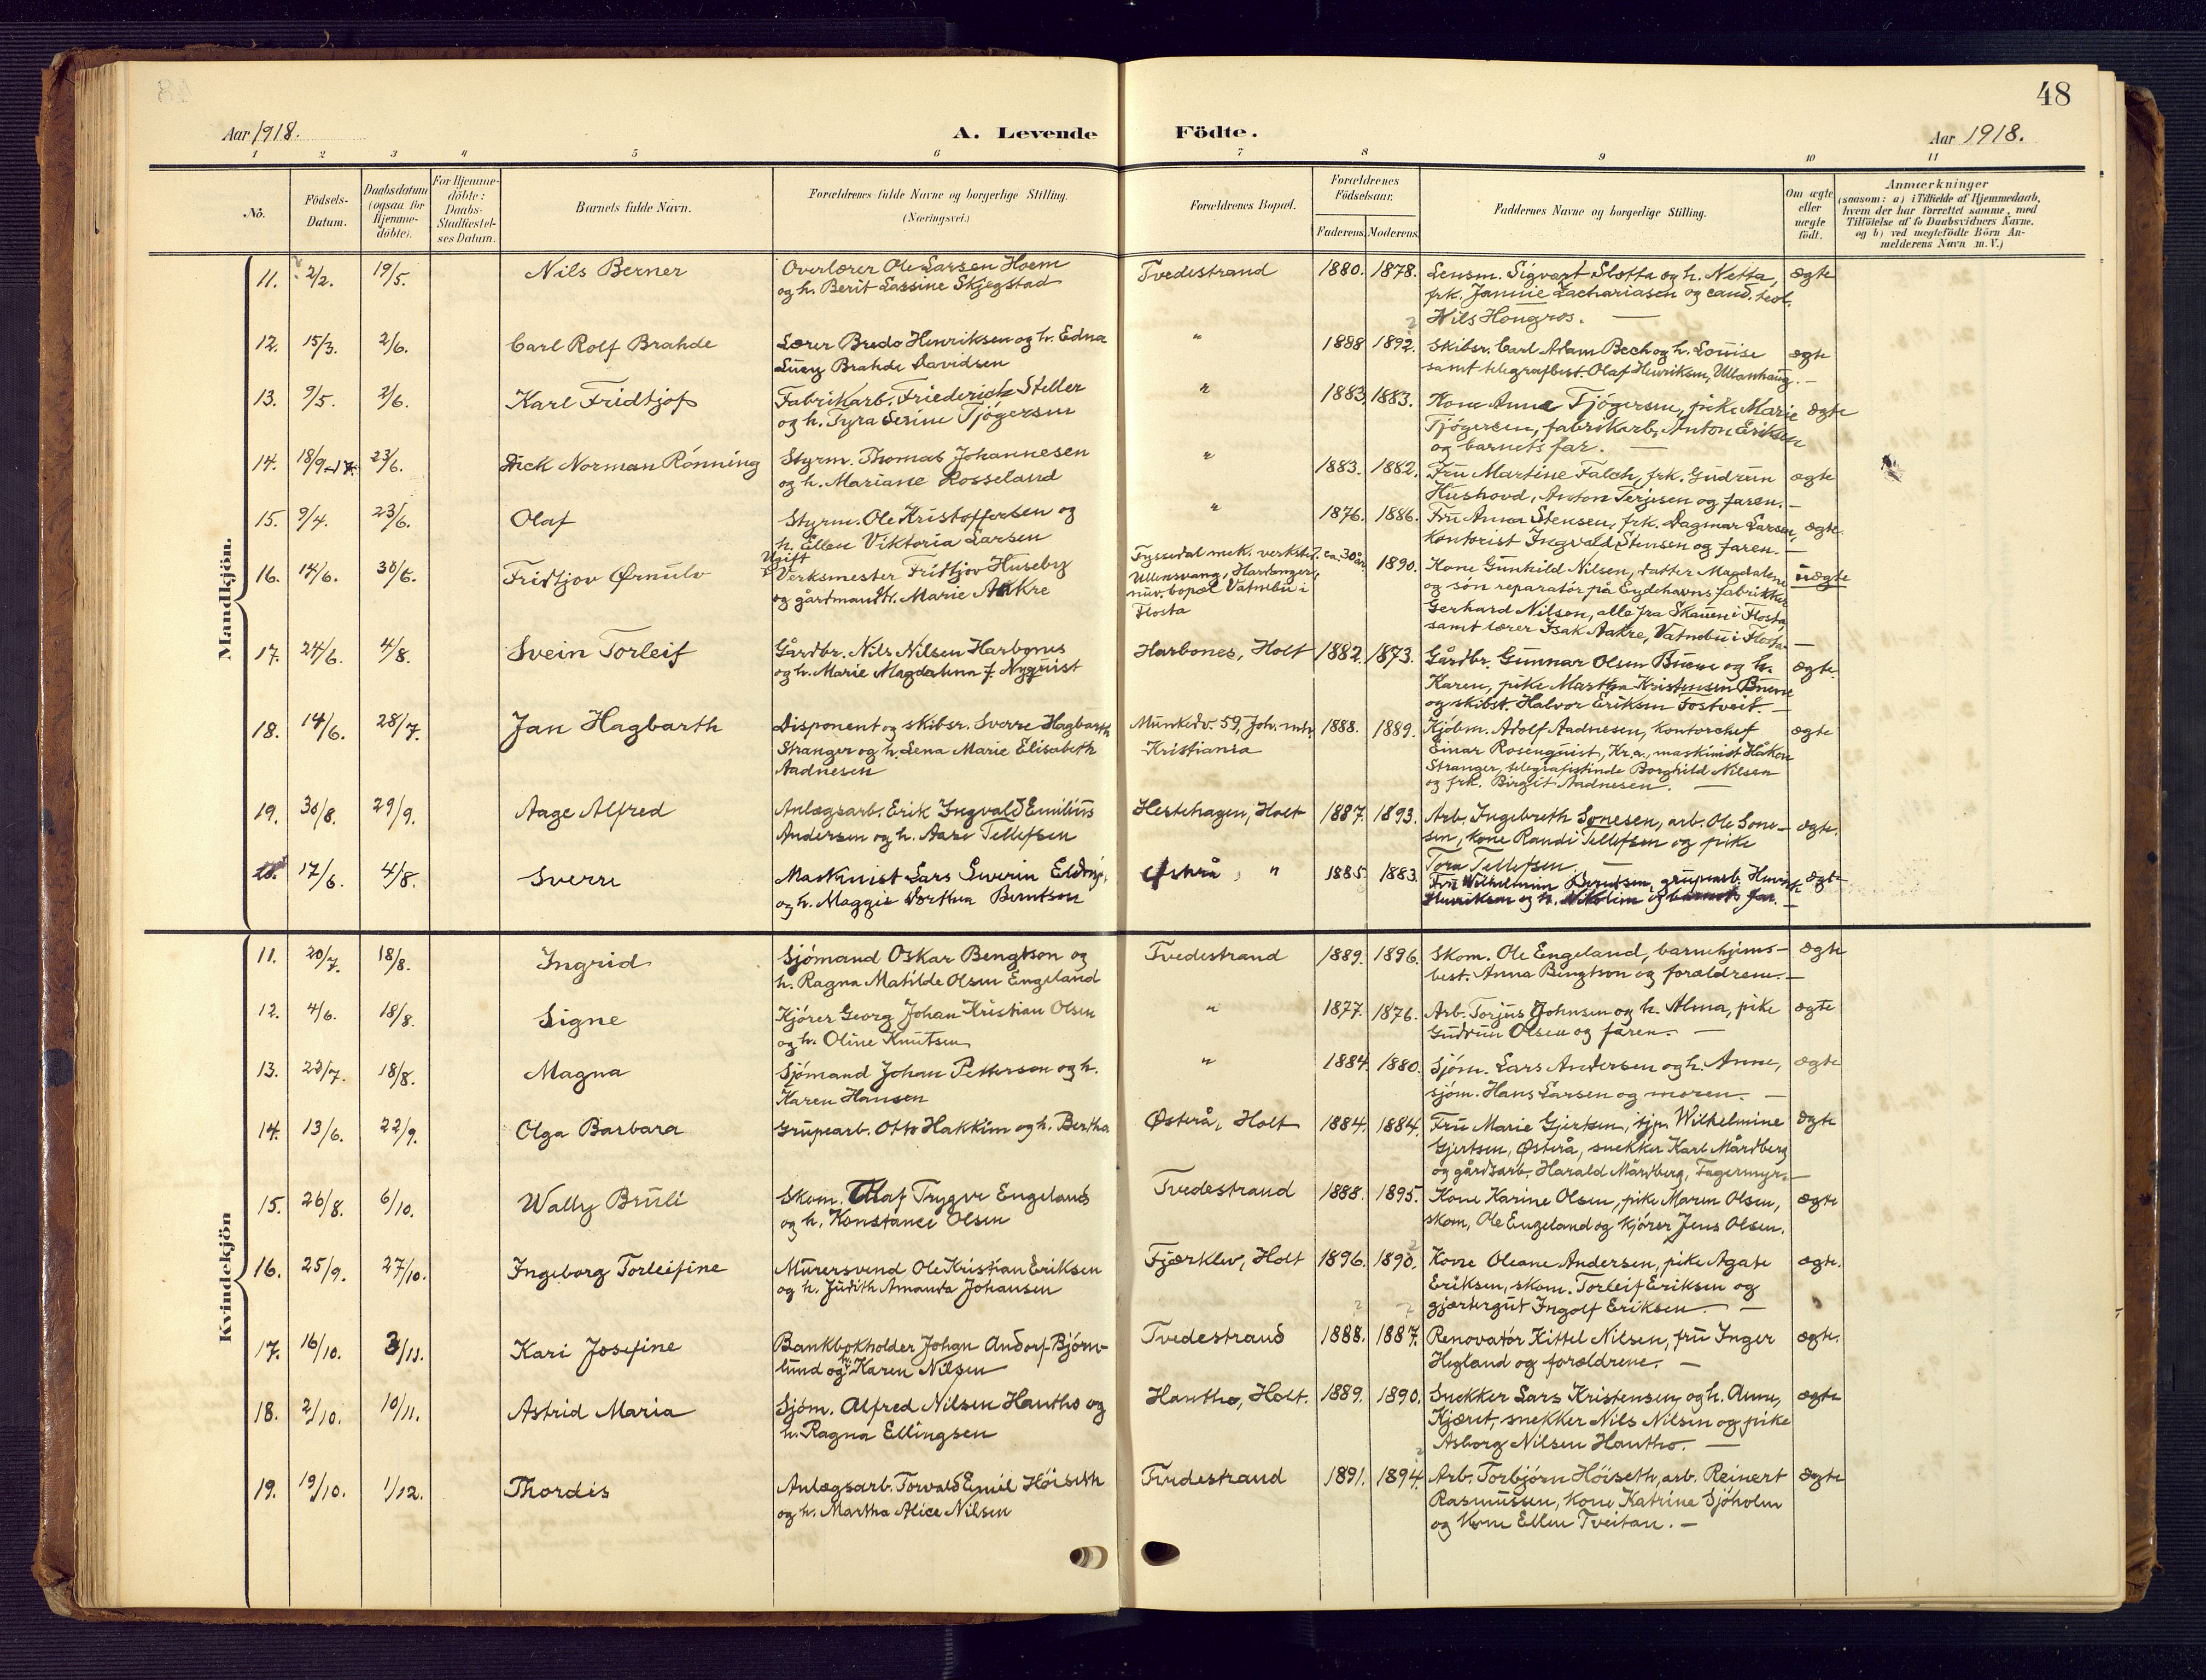 48
Aar 1918.
A. Levende Födte.
Aar 1918.
1 2 3 4 5 6 7 8 9 10 11
No.
Födsels-Datum.
Daabsdatum (ogsaa for Hjemme-döbte).
For Hjemme-döbte: Daabs-Stadfæstel-ses Datum.
Barnets fulde Navn.
Forældrenes fulde Navne og borgerlige Stilling.
(Næringsvei.)
Forældrenes Bopæl.
Forældrenes Födselsaar.
Faderens. Moderens.
Faddernes Navne og borgerlige Stilling.
Om ægte eller uægte födt.
Anmærkninger
(saasom: a) i Tilfælde af Hjemmedaab,
hvem der har forrettet samme, med
Tilföielse af to Daabsvidners Navne.
og b) ved uægtefödte Börn An-
melderens Navn m. V.)
Mandkjön.
11. 2/2. 19/5. Nils Berner
Overlærer Ole Larsen Hoem
og h. Berit Lassine Skjegstad
Tvedestrand 1880. 1878.
Lensm. Sigvart Slotta og h. Netta, ægte
frk. Jannie Zachariasen og cand. teol.
Nils Hougros. —
12. 15/3. 2/6. Carl Rolf Brahde
Lærer Bredo Henriksen og h. Edna
Lucy Brahde Davidsen
" 1888 1892.
Skibsr. Carl Adam Bech og h. Louise ægte
samt telegrafbest. Olaf Henriksen, Ullanhaug. —
13. 9/5. 2/6. Karl Fridtjof
Fabrikarb. Friederich Steller
og h. Tyra Serine Tjögersen
" 1883. 1883.
Kone Anna Tjögersen, pike Marie ægte
Tjögersen, fabrikarb. Anton Eriksen
og barnets far. —
14. 18/9-17. 23/6. Dick Norman Rönning
Styrm. Thomas Johannesen
og h. Mariane Rosseland
" 1883. 1882.
Fru Martine Falch, frk. Gudrun ægte
Hushovd, Anton Terjesen og faren. —
15. 9/4. 23/6. Olaf
Styrm. Ole Kristoffersen og
h. Ellen Viktoria Larsen
" 1876. 1886.
Fru Anna Stensen, frk. Dagmar Larsen, ægte
Kontorist Ingvald Stensen og faren. —
16. 14/6. 30/6. Fridtjov Ørnulv
Ugift
Verksmester Fridtjov Huseby
og gårdmandsd. Marie Aakre
Tyssedal mek. verksted,
Ullensvang, Hardanger,
nuv. bopæl Vatnebu i
Flosta
ca. 30 år. 1890.
Kone Gunhild Nilsen, datter Magdalene uægte
og sön reparatör på Eydehavns fabrikker
Gerhard Nilsen, alle fra Skauen i Flosta,
samt lærer Isak Aakre, Vatnebu i Flosta —
17. 24/6. 4/8. Svein Torleif
Gårdbr. Nils Nilsen Harbones
og h. Marie Magdalena f. Nyquist
Harbones, Holt 1882. 1873.
Gårdbr. Gunnar Olsen Buene og h. ægte.
Karen, pike Martha Kristensen Buene
og skibst. Halvor Eriksen Fostveit. —
18. 14/6. 28/7. Jan Hagbarth
Disponent og skibsr. Sverre Hagbarth
Stranger og h. Lena Marie Elisabeth
Aadnesen
Munkedv. 59, Joh. mh.
Kristiania
1888. 1889.
Kjöbm. Adolf Aadnesen, Kontorchef ægte
Einar Rosenquist, Kr.a., maskinist Håkon
Stranger, telegrafistinde Borghild Nilsen
og frk. Birgit Aadnesen. —
19. 30/8. 29/9. Aage Alfred
Anlægsarb. Erik Ingvald Emilius
Andersen og h. Aase Tellefsen
Hestehagen, Holt 1887. 1893.
Arb. Ingebreth Sonesen, arb. Ole Sone- ægte.
sen, kone Randi Tellefsen og pike
Tora Tellefsen —
17/6. 4/8. Sverre
Maskinist Lars Severin
og h. Maggie Dorthea Berntsen
Østerå, " 1885. 1883.
Fru Wilhelmine Berntsen, grupearb. ægte
Henriksen og h. Nikoline og barnets far. —
Kvindekjön
11. 20/7. 18/8. Ingrid
Sjömand Oskar Bengtson og
h. Ragna Matilde Olsen Engeland
Tvedestrand 1889. 1896.
Skom. Ole Engeland, barnehjems- ægte
best. Anna Bengtson og forældrene. —
12. 4/6. 18/8. Signe
Kjörer Georg Johan Kristian Olsen
og h. Oline Knutsen
" 1877. 1876.
Arb. Torjus Johnsen og h. Alma, pike ægte
Gudrun Olsen og faren. —
13. 22/7. 18/8. Magna
Sjömand Johan Petterson og h.
Karen Hansen
" 1884. 1880.
Sjöm. Lars Andersen og h. Anne, ægte
sjöm. Hans Larsen og moren. —
14. 13/6. 22/9. Olga Barbara
Grupearb. Otto Hakkim og h. Bertha
Østerå, Holt 1884. 1884.
Fru Marie Gjertsen, tjp. Wilhelmine ægte
Gjertsen, Østerå, snekker Karl Mårdberg
og gårdsarb. Harald Mårdberg, Fagermyr. —
15. 26/8. 6/10. Wally Bruli
Skom. Olaf Trygve Engeland
og h. Konstance Olsen
Tvedestrand 1888. 1895.
Kone Karine Olsen, pike Maren Olsen, ægte
skom. Ole Engeland og kjörer Jens Olsen.
16. 25/9. 27/10. Ingeborg Torleifine
Murersvend Ole Kristian Eriksen
og h. Judith Amanda Johansen
Fjærklev, Holt 1896. 1890.
Kone Oleane Andersen, pike Agate ægte.
Eriksen, skom. Torleif Eriksen og
gjætergut Ingolf Eriksen. —
17. 16/10. 3/11. Kari Josefine
Bankbokholder Johan Andorf Björn-
lund og h. Karen Nilsen
Tvedestrand 1888. 1887.
Renovatör Kittel Nilsen, fru Inger ægte.
Hegland og forældrene. —
18. 2/10. 10/11. Astrid Maria
Sjöm. Alfred Nilsen Hantho og
h. Ragna Ellingsen
Hantho, Holt. 1889. 1890.
Snekker Lars Kristensen og h. Anne, ægte
Kjæret, snekker Nils Nilsen og pike
Asborg Nilsen Hantho. —
19. 19/10. 1/12. Thordis
Anlægsarb. Torvald Emil Höiseth
og h. Martha Alice Nilsen
Tvedestrand 1891. 1894.
Arb. Torbjörn Höiseth, arb. Reinert ægte
Rasmussen, kone Katrine Sjöholm
og kone Ellen Tveitan. —